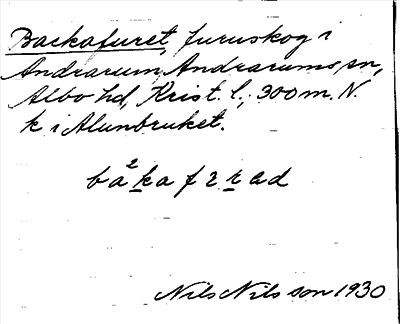 Backafuret, furuskog i
Andrarum, Andrarums sn,
Albo hd, Krist. l., 300 m. N.
k i Alunbruket.
Nils Nilsson 1930